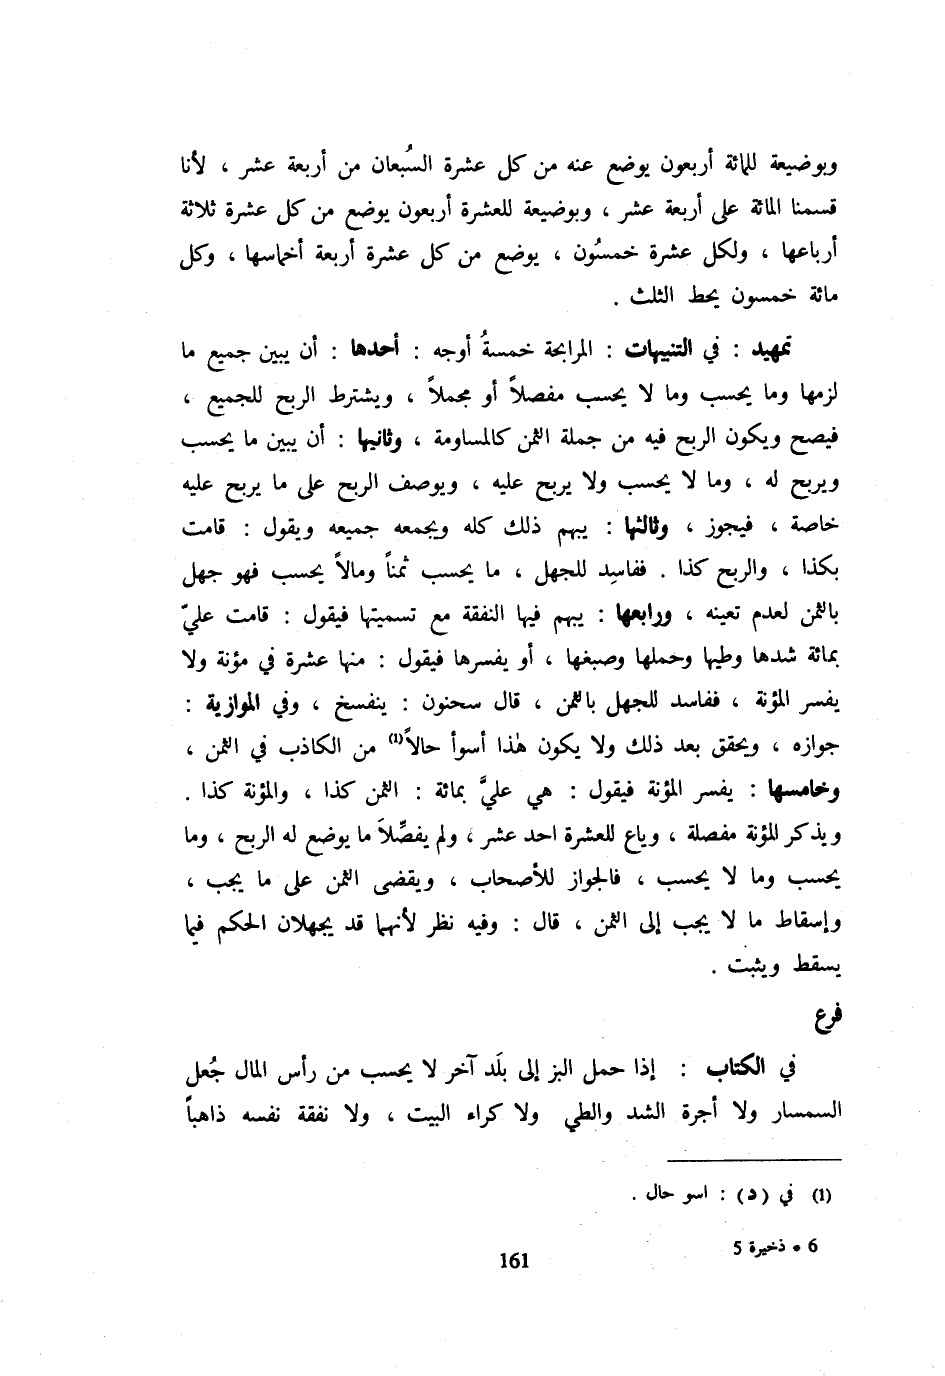 وبوضيعة للمائة أربعون يوضع عنه من كل عشرة السُبعان من أربعة عشر ، لأنا
قسمنا المائة على أربعة عشر ، وبوضيعة للعشرة أربعون يوضع من كل عشرة ثلاثة
أرباعها ، ولكل عشرة خمسُون ، يوضع من كل عشرة أربعة أخماسها ، وكل
مائة خمسون يحط الثلث .
تمهيد : في التنبيهات : المرابحة خمسةُ أوجه : أحدها : أن يبين جميع ما
لزمها وما يحسب وما لا يحسب مفصلاً أو مجملاً ، ويشترط الربح للجميع ،
فيصح ويكون الربح فيه من جملة الثمن كالمساومة ، وثانيها : أن يبين ما يحسب
ويربح له ، وما لا يحسب ولا يربح عليه ، ويوصف الربح على ما يربح عليه
خاصة ، فيجوز ، وثالثها : يبهم ذلك كله ويجمعه جميعه ويقول : قامت
بكذا ، والربح كذا . ففاسِد للجهل ، ما يحسب ثمناً ومالاً يحسب فهو جهل
بالثمن لعدم تعينه ، ورابعها : يبهم فيها النفقة مع تسميتها فيقول : قامت عليّ
بمائة شدها وطيها وحملها وصبغها ، أو يفسرها فيقول : منها عشرة في مؤنة ولا
يفسر المؤنة ، ففاسد للجهل بالثمن ، قال سحنون : ينفسخ ، وفي الموازية :
جوازه ، ويحقق بعد ذلك ولا يكون هٰذا أسوأ حالاً(1) من الكاذب في الثمن ،
وخامسها : يفسر المؤنة فيقول : هي عليَّ بمائة : الثمن كذا ، والمؤنة كذا .
ويذكر المؤنة مفصلة ، وباع للعشرة احد عشر ، ولم يفصِّلاَ ما يوضع له الربح ، وما
يحسب وما لا يحسب ، فالجواز للأصحاب ، ويقضى الثمن على ما يجب ،
وإسقاط ما لا يجب إلى الثمن ، قال : وفيه نظر لأنهما قد يجهلان الحكم فيما
يسقط ويثبت .
فرع
في الكتاب : إذا حمل البز إلى بلَد آخر لا يحسب من رأس المال جُعل
السمسار ولا أجرة الشد والطي ولا كراء البيت ، ولا نفقة نفسه ذاهباً
(1) في (د) : اسو حال .
6 • ذخيرة 5
161